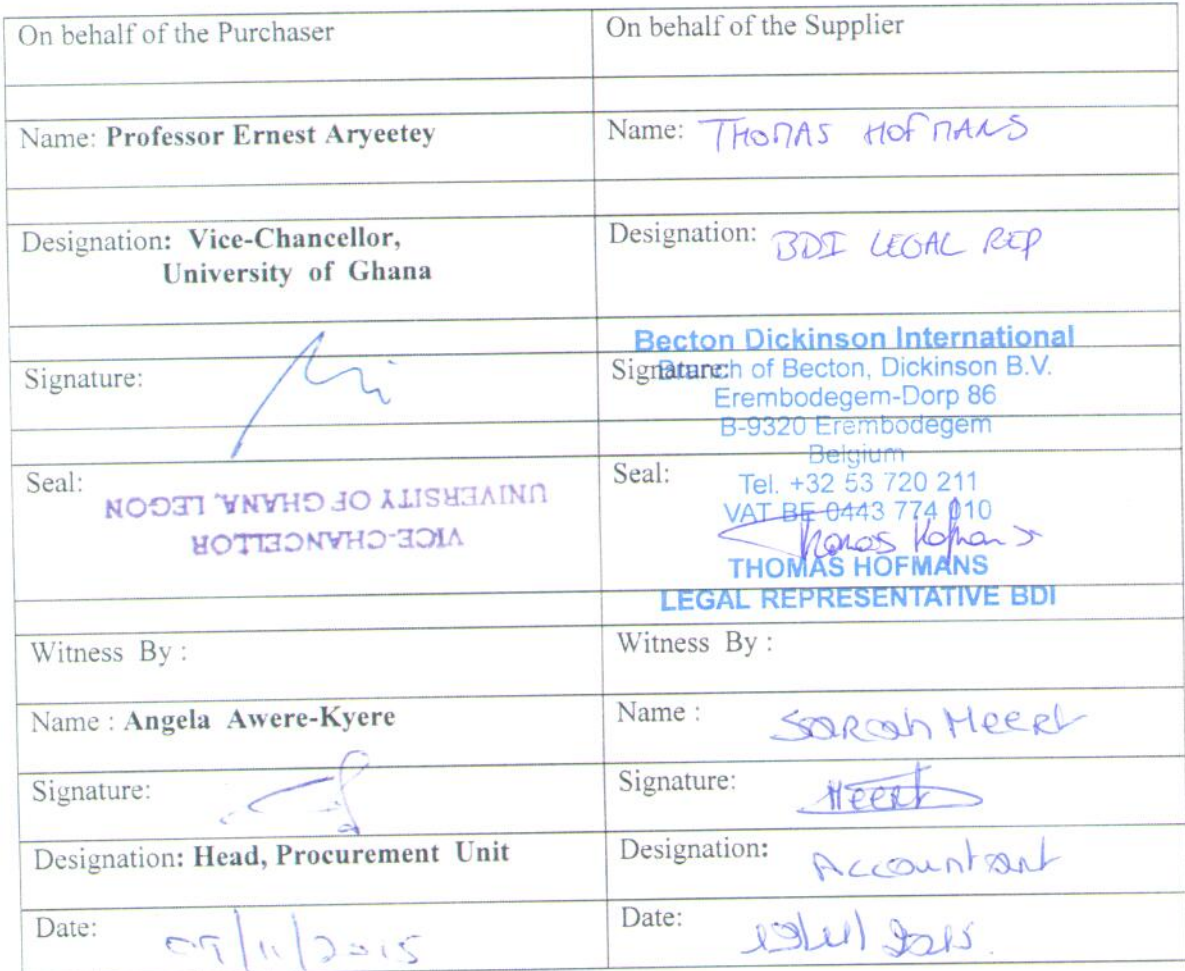 On behalf of the Purchaser
On behalf of the Supplier
Name: Professor Ernest Aryeetey
Name: THOMAS HOFMANS
Designation: Vice-Chancellor,
University of Ghana
Designation: BDI LEGAL REP
Becton Dickinson International
Signature:
Signature:
Branch of Becton, Dickinson B.V.
Erembodegem-Dorp 86
B-9320 Erembodegem
Belgium
Seal:
VICE-CHANCELLOR
UNIVERSITY OF GHANA, LEGON
Seal:
Tel. +32 53 720 211
VAT BE 0443 774 010
Thomas Hofmans
THOMAS HOFMANS
LEGAL REPRESENTATIVE BDI
Witness By :
Witness By :
Name : Angela Awere-Kyere
Name : Sarah Meert
Signature:
Signature: Meert
Designation: Head, Procurement Unit
Designation: Accountant
Date: 09/11/2015
Date: